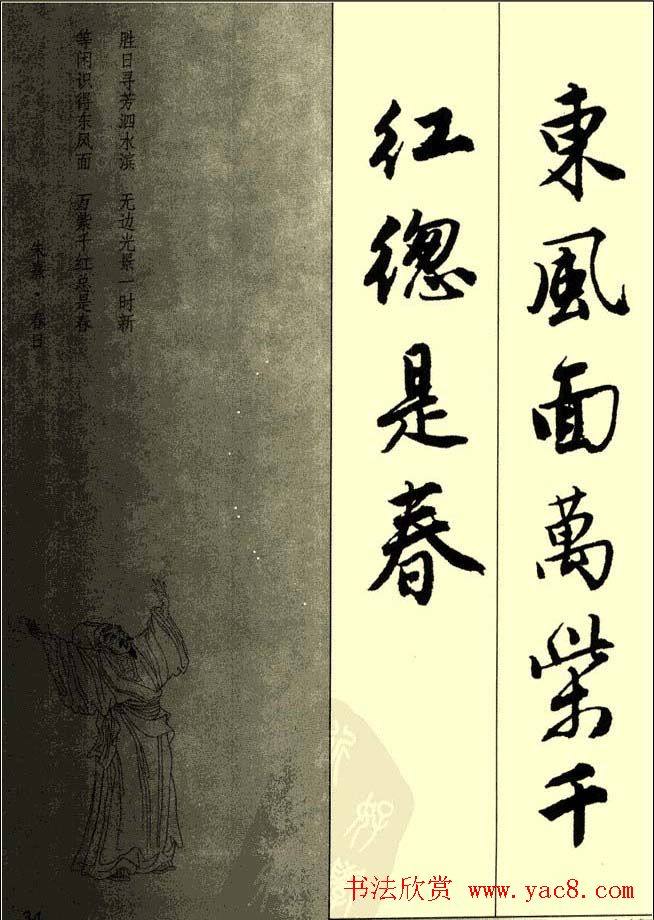 東風面萬紫千
红緫是春
胜日寻芳泗水滨 无边光景一时新
等闲识得东风面 万紫千红总是春
朱熹·春日
34
书法欣赏 www.yac8.com